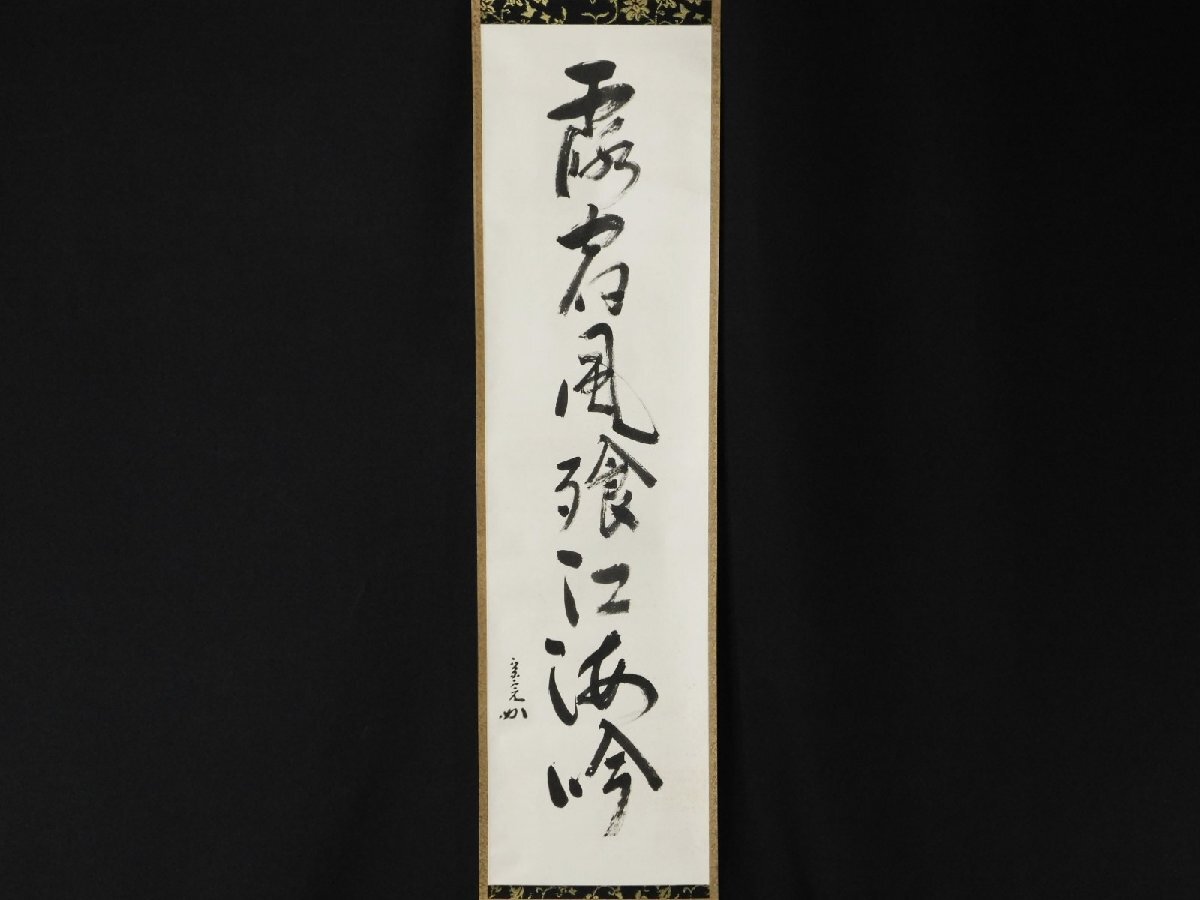 露宿風飧江海吟